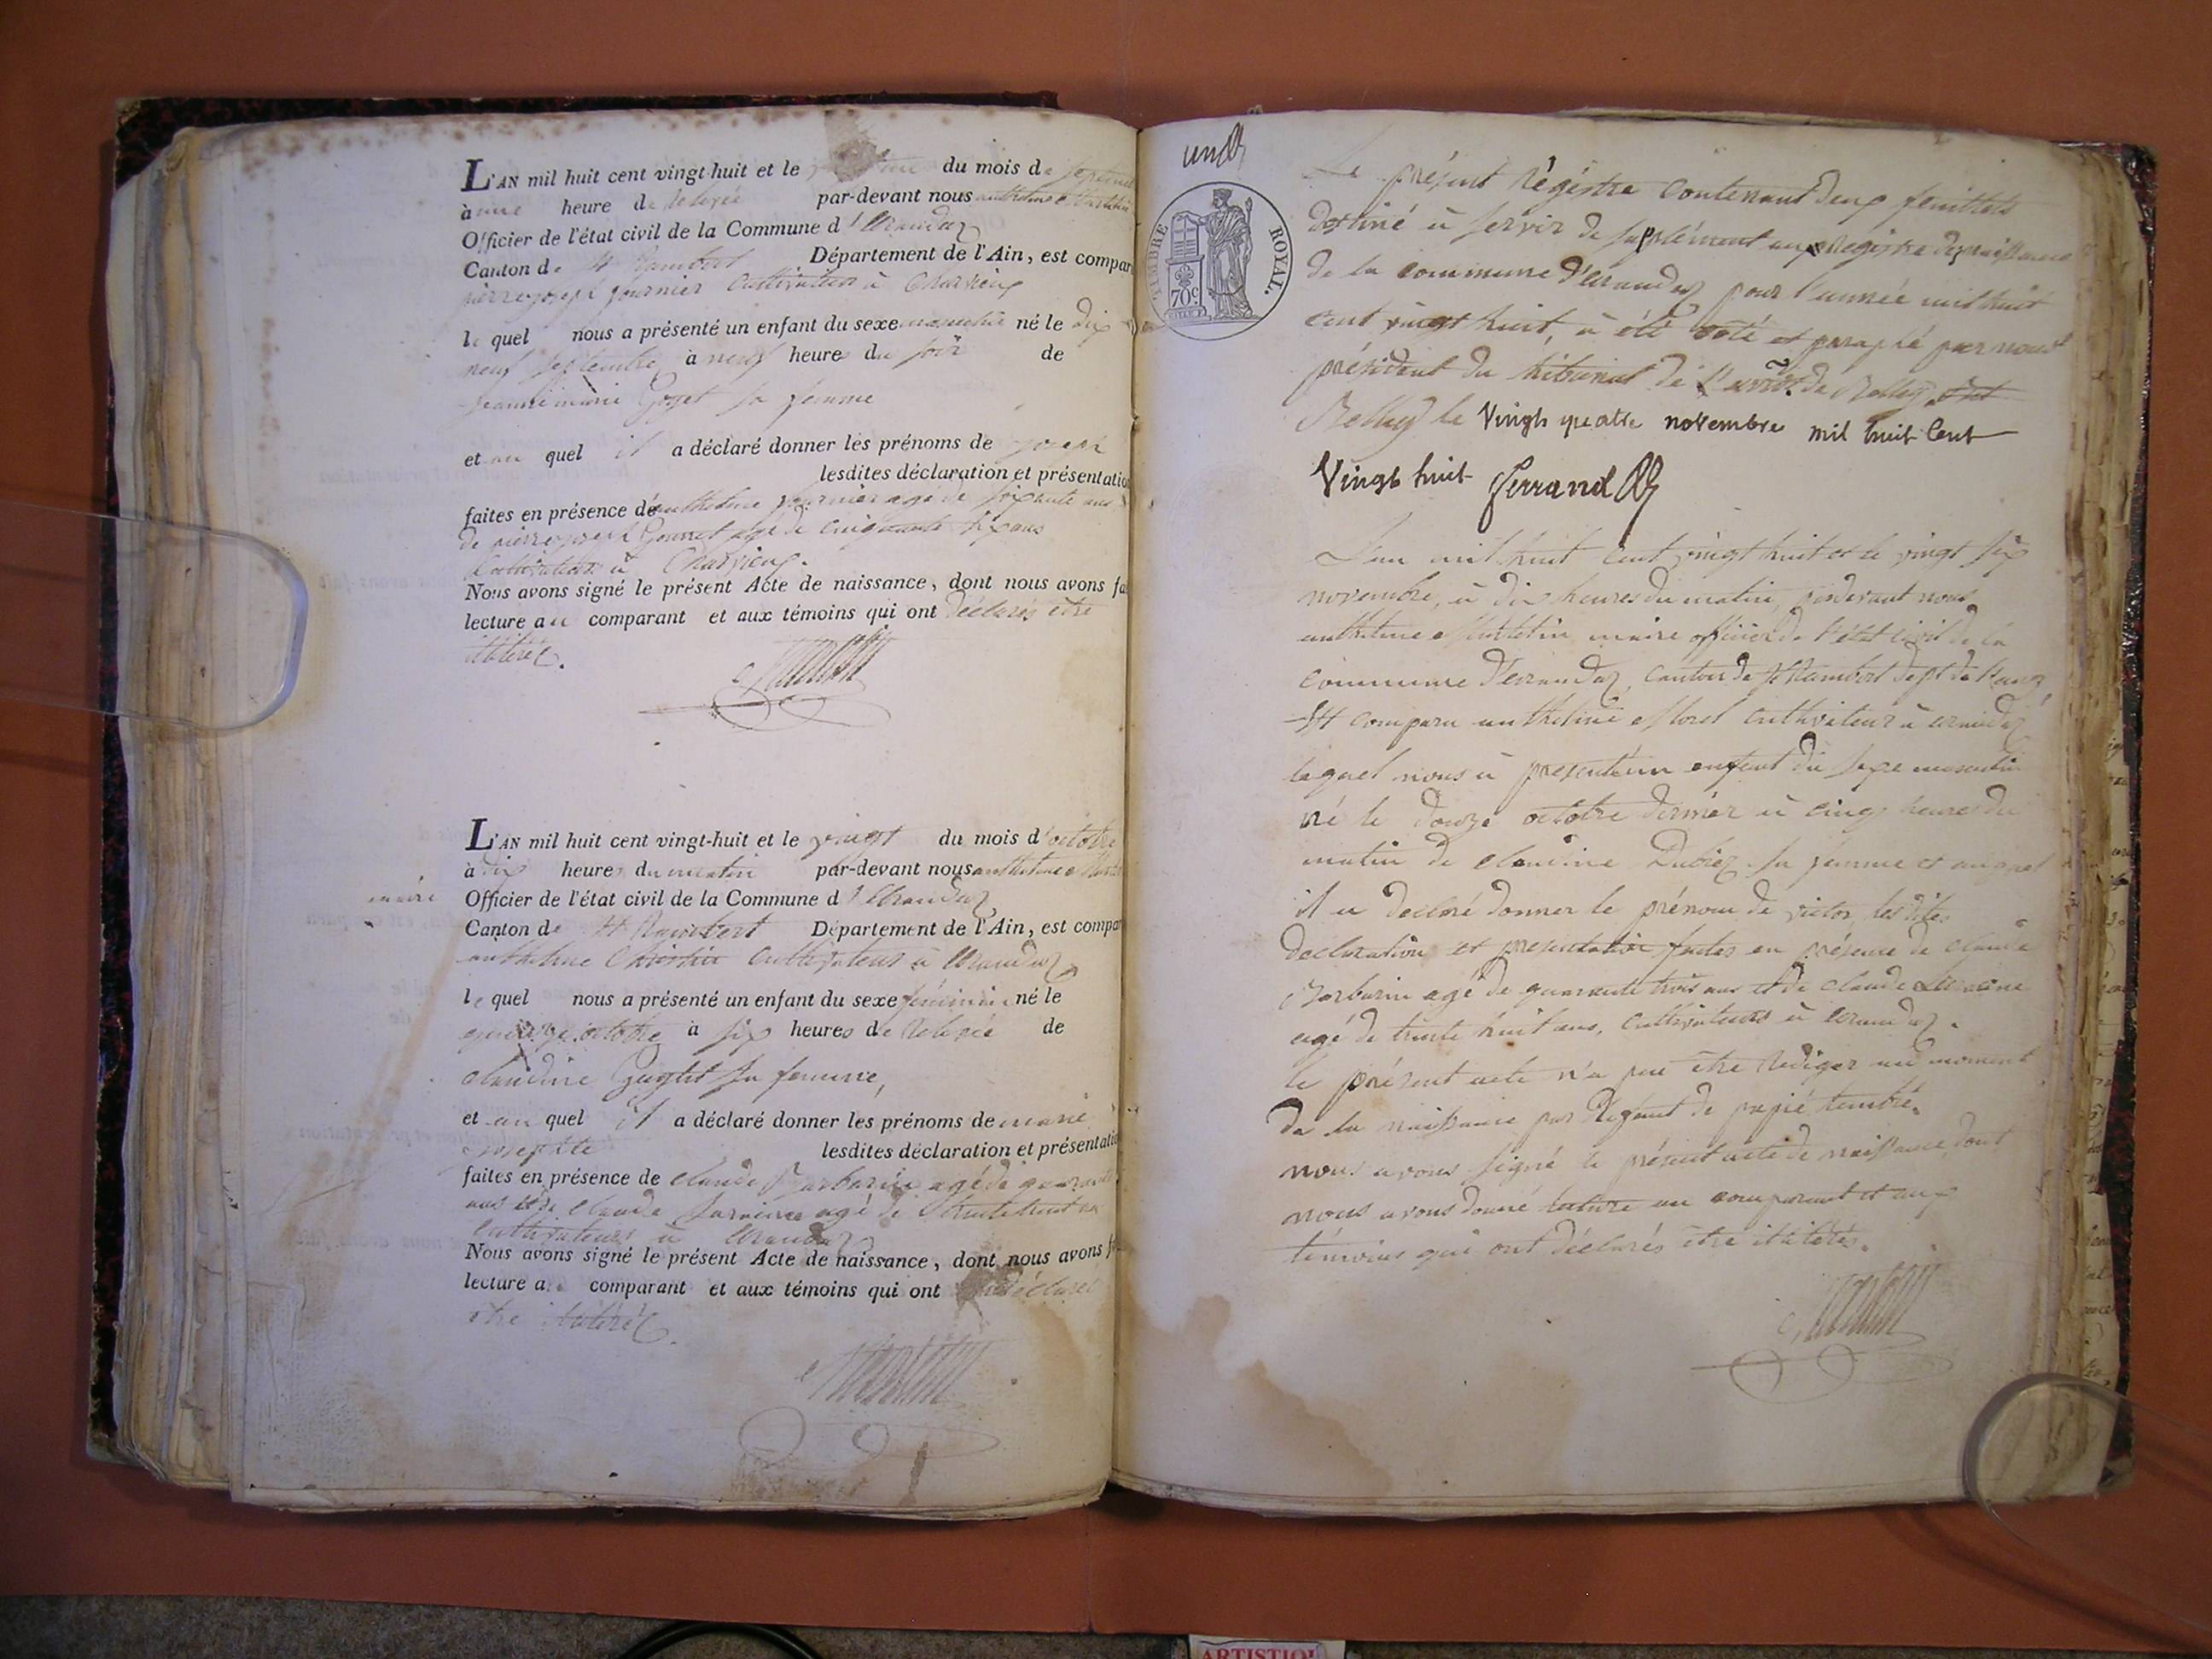 L'AN mil huit cent vingt-huit et le du mois de septembre
à une heure de relevée par-devant nous anthelme Martin
Officier de l'état civil de la Commune d'
Canton de St Rambert Département de l'Ain, est compar
pierre joseph fournier cultivateur à Charvieux
le quel nous a présenté un enfant du sexe masculin né le dix
neuf septembre à neuf heures du soir de
jeanne marie sa femme
et au quel il a déclaré donner les prénoms de joseph
lesdites déclaration et présentatio
faites en présence de anthelme fournier age de soixante ans
de pierre joseph age de cinquante six ans
cultivateurs à Charvieux.
Nous avons signé le présent Acte de naissance, dont nous avons fa
lecture au comparant et aux témoins qui ont déclarés être
illiteréz.
L'AN mil huit cent vingt-huit et le vingt du mois d'octobre
à dix heures du matin par-devant nous anthelme Martin
maire Officier de l'état civil de la Commune d'
Canton de St Rambert Département de l'Ain, est compar
anthelme cultivateur à
le quel nous a présenté un enfant du sexe féminin né le
quinze octobre à six heures de relevée de
claudine sa femme,
et au quel il a déclaré donner les prénoms de marie
josephte lesdites déclaration et présentatio
faites en présence de claude Barbarin agé de quarante
ans et de claude agé de trente huit ans
cultivateurs à
Nous avons signé le présent Acte de naissance, dont nous avons f
lecture au comparant et aux témoins qui ont déclarés
être illiteréz.
un
TIMBRE ROYAL.
70c.
Le présent Régistre contenant deux feuillets
destiné à servir de supplément au registre de naissance
de la commune d' pour l'année mil huit
cent vingt huit, à été coté et paraphé par nous
président du tribunal de l'arrdt. de Belley
Belley le Vingt quatre novembre mil huit cent
Vingt huit Ferrand
L'an mil huit cent vingt huit et le vingt six
novembre, à dix heures du matin, pardevant nous
anthelme Martin maire officier de l'état civil de la
commune d' canton de St Rambert dept de l'
Est comparu anthelme Morel cultivateur à
lequel nous à présenté un enfant du sexe masculin
né le douze octobre dernier à cinq heures du
matin de claudine Dubiez sa femme et auquel
il a declaré donner le prénom de victor, les dites
declaration et presentation faites en présence de claude
Barbarin agé de quarante trois ans et de claude
agé de trente huit ans, cultivateurs à
le présent acte n'a pu être rediger au moment
de la naissance par de papié timbré.
nous avons signé le présent acte de naissance, dont
nous avons donné lecture au comparant et aux
témoins qui ont déclarés être illiterés.
ARTISTIQ